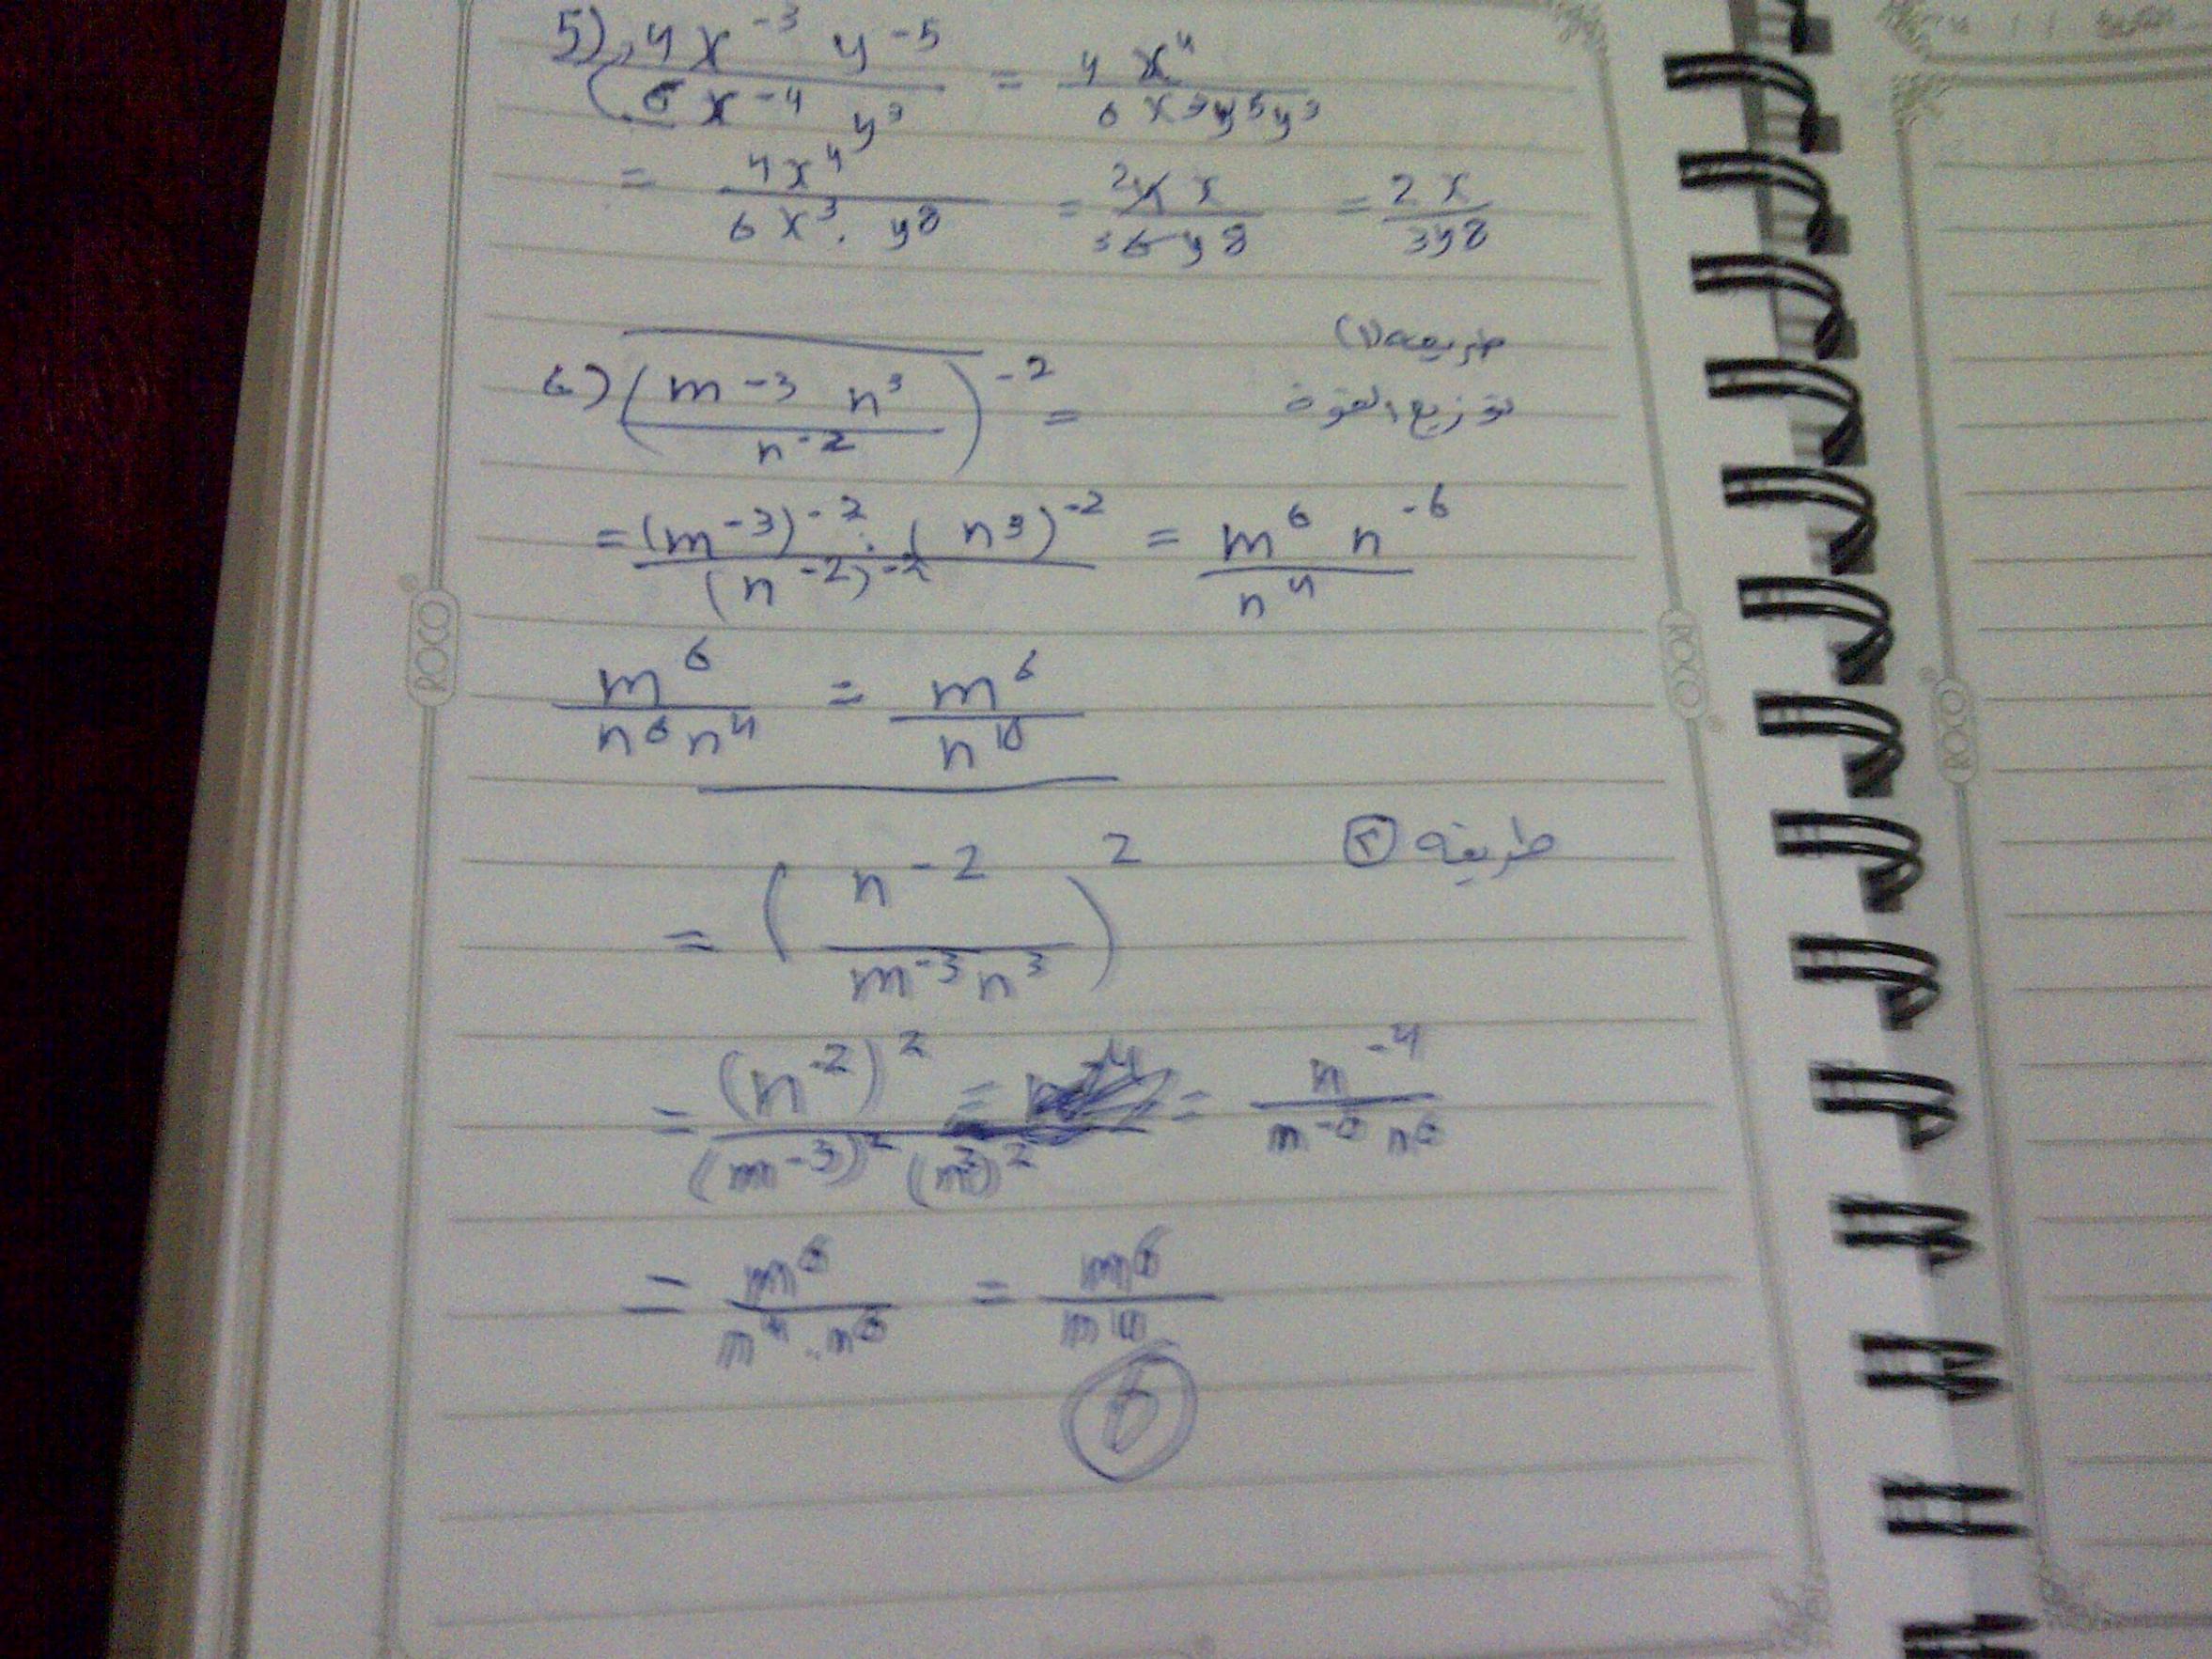 5) 4x^-3 y^-5 / 6x^-4 y^3 = 4x^4 / 6x^3y^5y^3
= 4x^4 / 6x^3 . y^8 = 2 4x / 3 6y^8 = 2x / 3y^8
طريقة (١)
6) (m^-3 n^3 / n^-2)^-2 = توزيع القوة
= (m^-3)^-2 . (n^3)^-2 / (n^-2)^-2 = m^6 n^-6 / n^4
m^6 / n^6 n^4 = m^6 / n^10
طريقة ٢
= (n^-2 / m^-3 n^3)^2
= (n^-2)^2 / (m^-3)^2 (n^3)^2 = n^-4 / m^-6 n^6
= m^6 / n^4 . n^6 = m^6 / n^10
6
ROCO
ROCO
ROCO